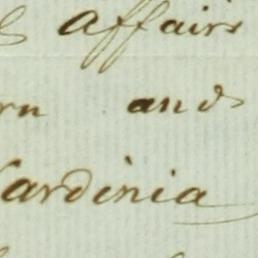 Affairs
rn and
Sardinia